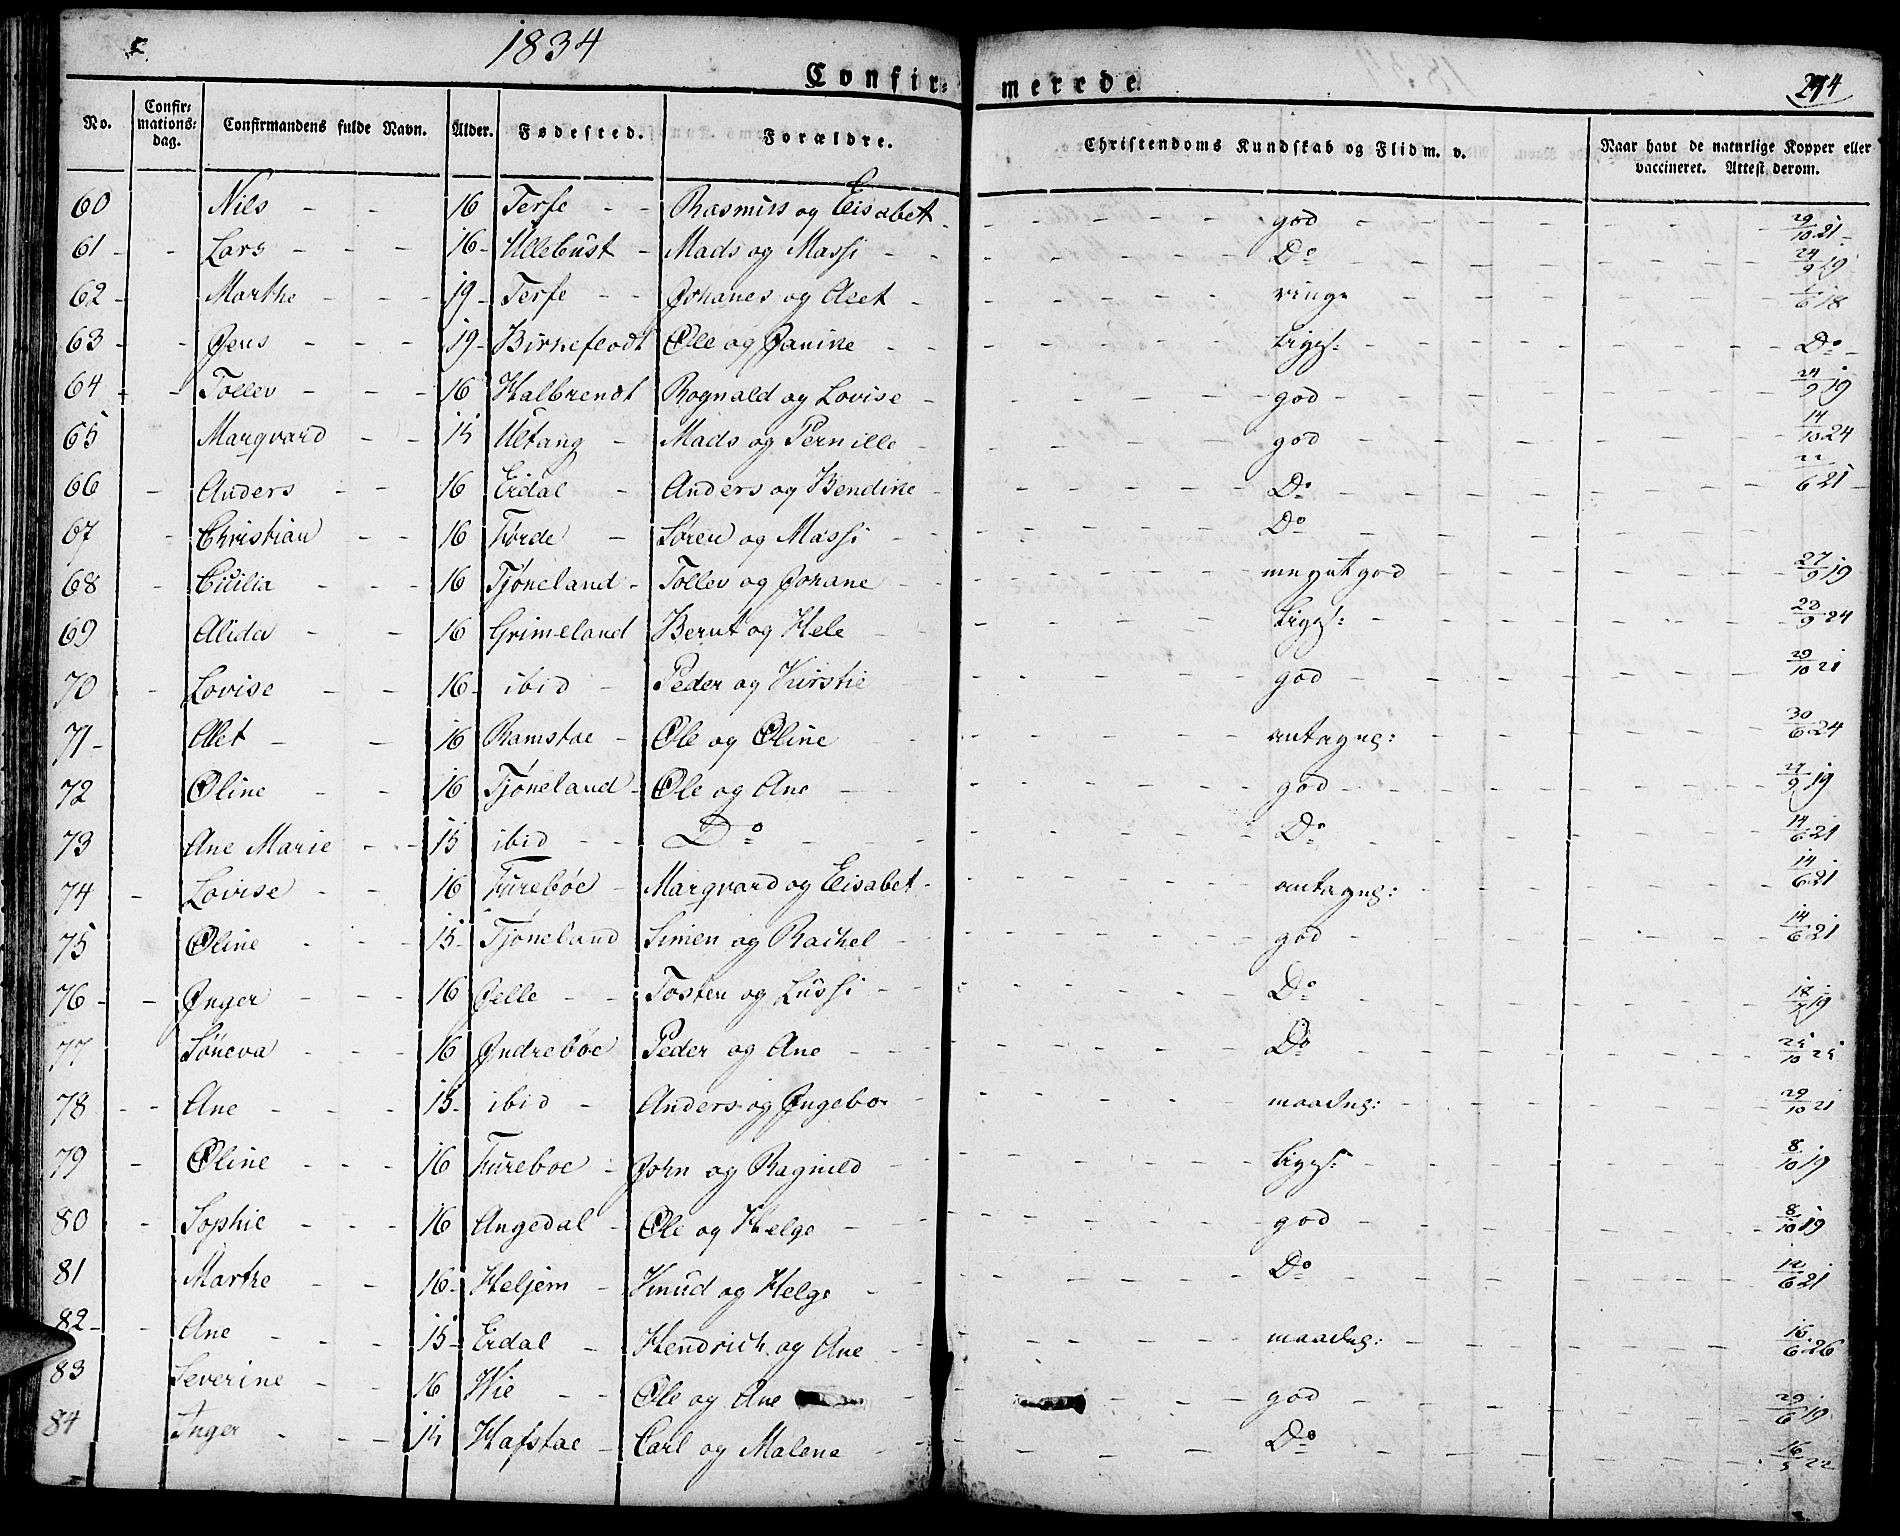 1834
Confirmerede
274
No. Confirmationsdag. Confirmandens fulde Navn. Alder. Fødested. Forældre. Christendoms Kundskab og Flid m. v. Naar havt de naturlige Kopper eller vaccineret. Attest derom.
60 Nils 16 Terfe Rasmus og Elisabet god 29/10 21
61 Lars 16 Ullebust Mads og Massi Do 24/9 19
62 Marthe 19 Terfe Johanes og Alet ringe /6 18
63 Jens 19 Birkeflodt Ole og Janike ligs: Do
64 Tollev 16 Halbrendt Rognald og Lovise god 24/9 19
65 Marqvard 15 Ultang Mads og Pernille god 14/10 24
66 Anders 16 Erdal Anders og Bendike Do 22/6 21
67 Christian 16 Førde Søren og Massi Do
68 Cicilia 16 Tjøneland Tollev og Johane meget god 27/9 19
69 Alida 16 Grimeland Bernt og Hele ligs: 28/9 24
70 Lovise 16 ibid Peder og Kirstie god 29/10 21
71 Alet 16 Ramstae Ole og Oline antagel: 30/6 24
72 Oline 16 Tjøneland Ole og Ane god 27/9 19
73 Ane Marie 15 ibid Do Do 14/6 21
74 Lovise 16 Furebøe Marqvard og Elisabet antagel: 14/6 21
75 Oline 15 Tjøneland Simen og Rachel god 14/6 21
76 Inger 16 Jelle Tosten og Lussi Do 18/7 19
77 Søneva 16 Indrebøe Peder og Ane Do 25/10 25
78 Ane 15 ibid Anders og Ingebor maadel: 29/10 21
79 Oline 16 Fureboe John og Ragnild ligs: 8/10 19
80 Sophie 16 Angedal Ole og Helge god 8/10 19
81 Marthe 16 Heljem Knud og Helge Do 12/6 21
82 Ane 15 Erdal Hendrich og Ane maadel: 16/6 26
83 Severine 16 Hie Ole og Ane god 29/6 19
84 Inger 15 Hafstae Carl og Malene Do 16/5 22